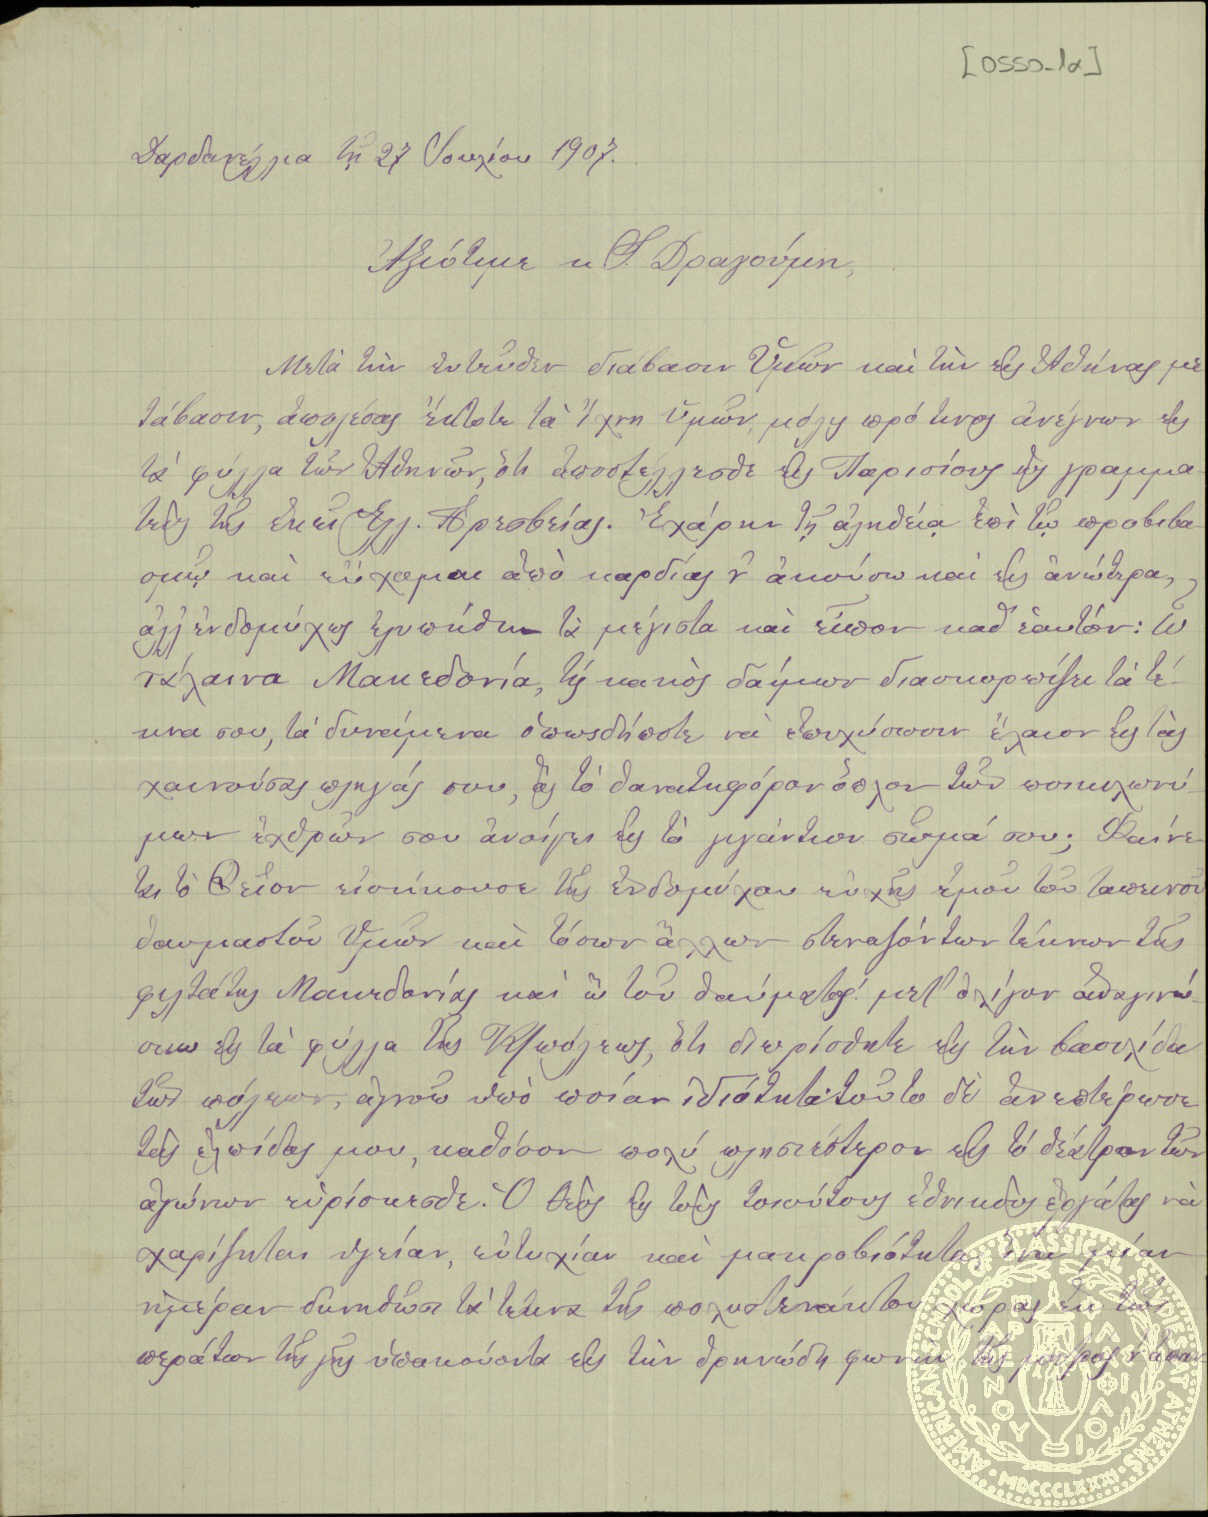 [0550-1α]
Δαρδανέλλια τῇ 27 Ἰουλίου 1907.
Ἀξιότιμε κ Ἴ. Δραγούμη,
Μετὰ τὴν ἐντεῦθεν διάβασιν Ὑμῶν καὶ τὴν εἰς Ἀθήνας με
τάβασιν, ἀπολέσας ἔκτοτε τὰ ἴχνη ὑμῶν, μόλις πρό τινος ἀνέγνων εἰς
τὰ φύλλα τῶν Ἀθηνῶν, ὅτι ἀποστέλλεσθε εἰς Παρισίους ὡς γραμμα-
τεὺς τῆς ἐκεῖ Ἑλλ. Πρεσβείας. Ἐχάρην τῇ ἀληθείᾳ ἐπὶ τῷ προβιβα-
σμῷ καὶ εὔχομαι ἀπὸ καρδίας ν' ἀκούσω καὶ εἰς ἀνώτερα,
ἀλλ' ἐνδομύχως ἐλυπήθην τὰ μέγιστα καὶ εἶπον καθ' ἑαυτόν: Ὦ
τάλαινα Μακεδονία, τίς κακὸς δαίμων διασκορπίζει τὰ τέ-
κνα σου, τὰ δυνάμενα ὁπωσδήποτε νὰ ἐπιχύσωσιν ἔλαιον εἰς τὰς
χαινούσας πληγάς σου, ἃς τὸ θανατηφόρον ὅπλον τῶν ποικιλωνύ-
μων ἐχθρῶν σου ἀνοίγει εἰς τὸ γιγάντιον σῶμά σου; Φαίνε-
ται τὸ Θεῖον εἰσήκουσε τῆς ἐνδομύχου εὐχῆς ἐμοῦ τοῦ ταπεινοῦ
θαυμαστοῦ Ὑμῶν καὶ τόσων ἄλλων στεναζόντων τέκνων τῆς
φιλτάτης Μακεδονίας καὶ ὢ τοῦ θαύματος! μετ' ὀλίγον ἀναγινώ-
σκω εἰς τὰ φύλλα τῆς Κ/πόλεως, ὅτι διωρίσθητε εἰς τὴν βασιλίδα
τῶν πόλεων, ἀγνοῶ ὑπὸ ποίαν ἰδιότητα· τοῦτο δὲ ἀνεπτέρωσε
τὰς ἐλπίδας μου, καθόσον πολὺ πλησιέστερον εἰς τὸ θέατρον τῶν
ἀγώνων εὑρίσκεσθε. Ὁ Θεὸς εἰς τοὺς τοιούτους ἐθνικοὺς ἐργάτας νὰ
χαρίζηται ὑγείαν, εὐτυχίαν καὶ μακροβιότητα, ἵνα μίαν
ἡμέραν δυνηθῶσι τὰ τέκνα τῆς πολυστενάκτου χώρας ἐκ τῶν
περάτων τῆς γῆς ὑπακούοντα εἰς τὴν θρηνώδη φωνὴν τῆς μητρὸς
AMERICAN SCHOOL OF CLASSICAL STUDIES AT ATHENS
MDCCCLXXXI